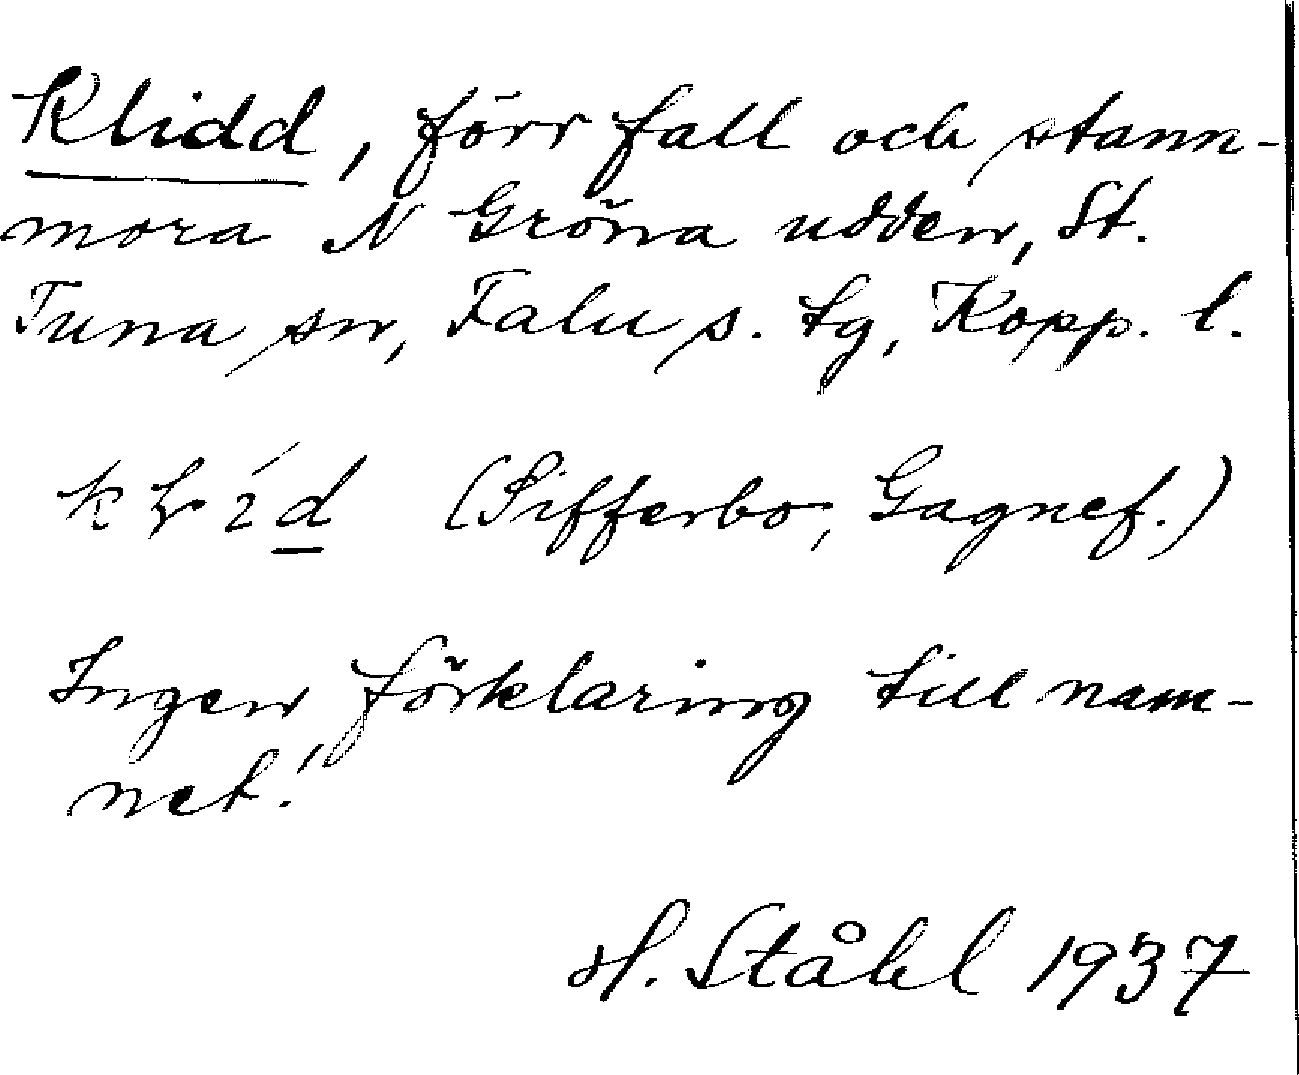 Klidd, förr fall och stann-
mora N Gröna udden, St.
Tuna sn, Falu s. tg, Kopp. l.
(Sifferbo, Gagnef.)
Ingen förklaring till nam-
net!
H. Ståhl 1937